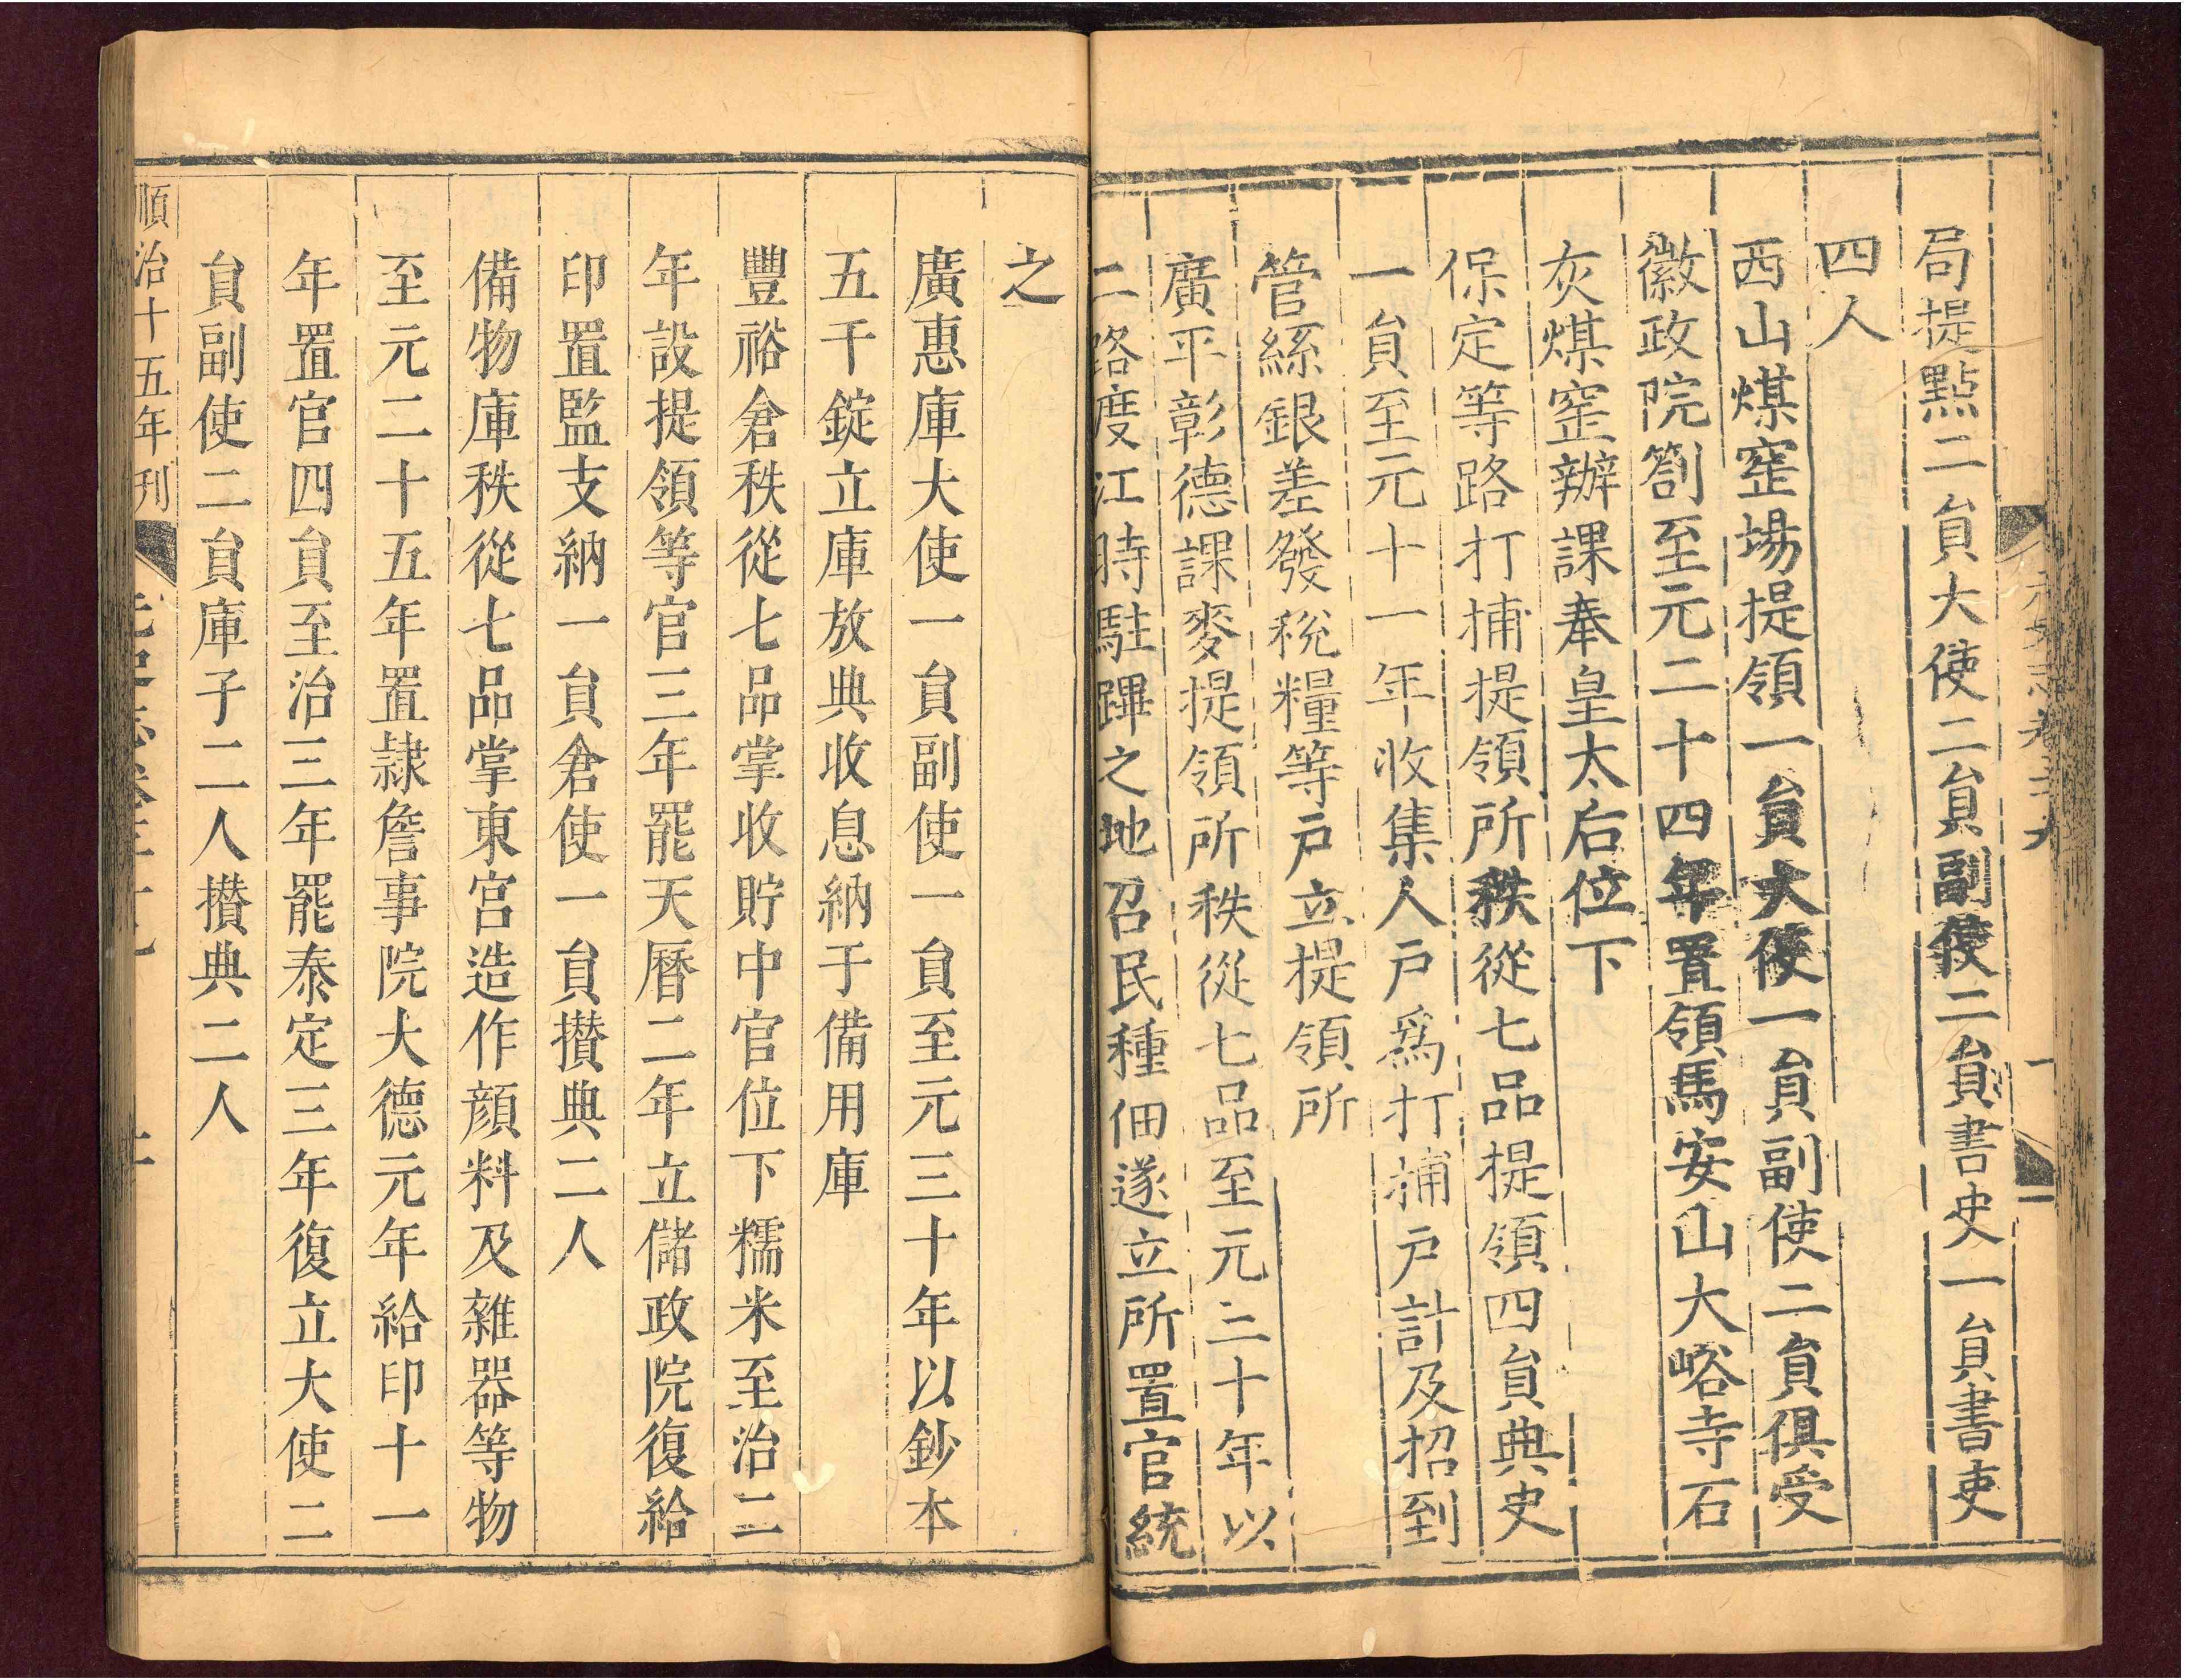 局提點二員大使二員副使二員書史一員書吏
四人
西山煤窑場提領一員大使一員副使二員俱受
徽政院劄至元二十四年置領馬安山大峪寺石
灰煤窑辦課奉皇太后位下
保定等路打捕提領所秩從七品提領四員典史
一員至元十一年收集人戶爲打捕戶計及招到
管絲銀差發稅糧等戶立提領所
廣平彰德課麥提領所秩從七品至元三十年以
二路度江時駐蹕之地召民種佃遂立所置官統
之
廣惠庫大使一員副使一員至元三十年以鈔本
五千錠立庫放典收息納于備用庫
豐裕倉秩從七品掌收貯中官位下糯米至治二
年設提領等官三年罷天曆二年立儲政院復給
印置監支納一員倉使一員攢典二人
備物庫秩從七品掌東宮造作顏料及雜器等物
至元二十五年置隷詹事院大德元年給印十一
年置官四員至治三年罷泰定三年復立大使二
員副使二員庫子二人攢典二人
順治十五年刊